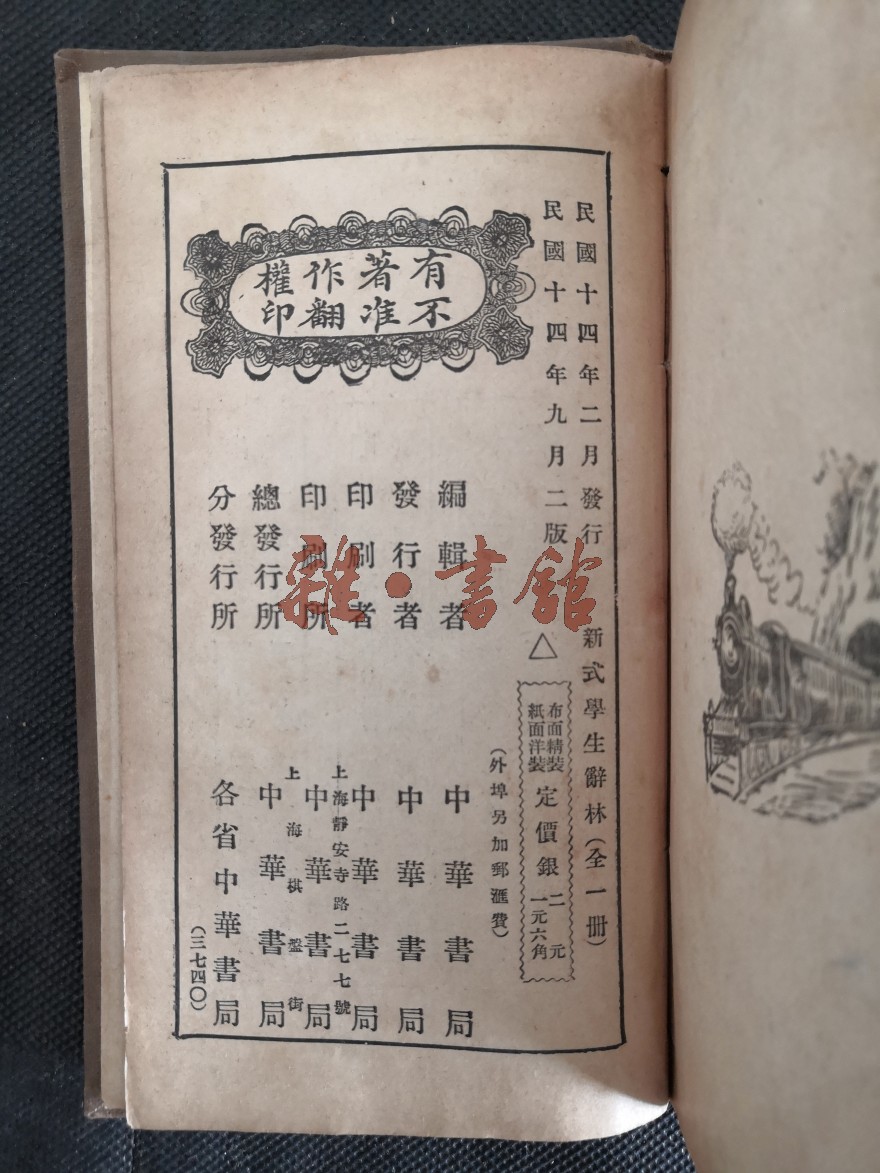 民國十四年二月發行
民國十四年九月二版
新式學生辭林(全一册)
△
布面精裝
紙面洋裝
定價銀
二元
一元六角
(外埠另加郵滙費)
有著作權
不准翻印
編輯者 中華書局
發行者 中華書局
印刷者 中華書局
上海靜安寺路二七七號
印刷所 中華書局
上海棋盤街
總發行所 中華書局
分發行所 各省中華書局
(三七四〇)
雜·書館